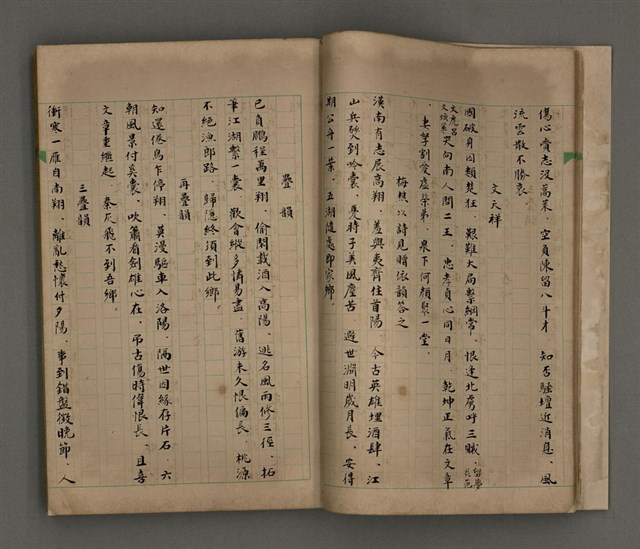 傷心賫志沒蒿萊、空負陳留八斗才、知否騷壇近消息、風
流雲散不勝哀、
文天祥
國破身囚類楚狂、艱難大局繫綱常、恨逢北虜呼三賊、
文虎呂
文煥葉
哭向南人問二王、忠孝貞心同日月、乾坤正氣在文章
、妻孥割愛虛榮弟、泉下何顏聚一堂、
梅樵以詩見贈依韻答之
潢南有志展高翔、羞與夷齊住首陽、今古英雄埋酒肆、江
山兵燹到吟囊、
子美風塵苦、避世淵明歲月長、安得
期公舟一葉、五湖隨處即家鄉。
疊韻
已負鵬程萬里翔、偷閒載酒入高陽、逃名風雨修三徑、拓
筆江湖繫一囊、歡會縱多情易盡、舊游未久恨偏長、桃源
不絕漁郎路、歸隱終須到此鄉、
再疊韻
知還倦鳥乍停翔、莫漫驅車入洛陽、隔世因緣存片石、六
朝風景付奚囊、吹簫看劍雄心在、吊古傷時偉恨長、且喜
文章重繼起、秦灰飛不到吾鄉、
三疊韻
衝寒一雁自南翔、離亂愁懷付夕陽、事到錯盤徵晚節、人